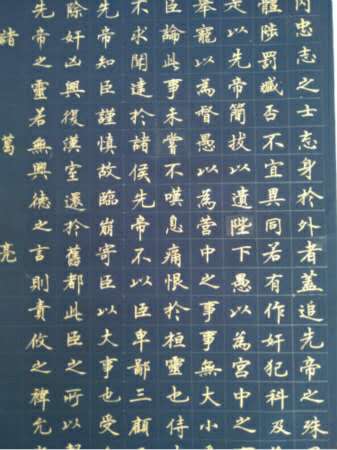 内忠志之士志身於外者蓋追先帝之殊
體陟罰臧否不宜異同若有作奸犯科及
是以先帝簡拔以遺陛下愚以為宮中之
舉寵以為督愚以為營中之事無大小
臣論此事未嘗不嘆息痛恨於桓靈也侍
不求聞達於諸侯先帝不以臣卑鄙三顧
先帝知臣謹慎故臨崩寄臣以大事也受
除奸凶興復漢室還於舊都此臣之所以
先帝之靈若無興德之言則責攸之禕允
諸葛亮